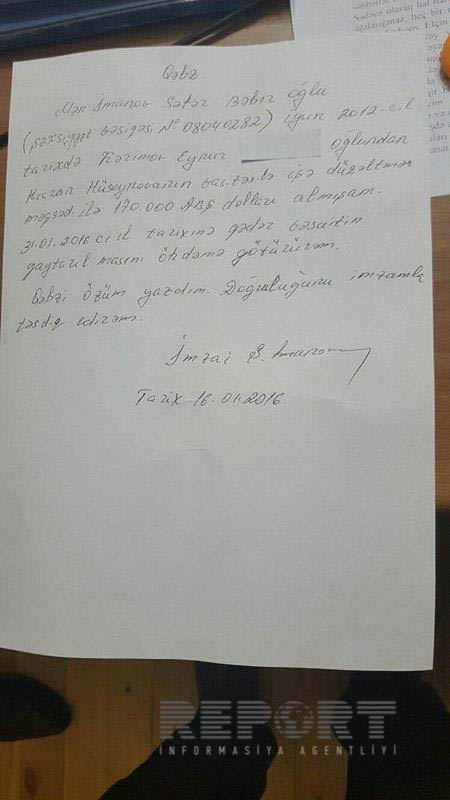 Qəbz.
Mən İmanov Səfər Bəbir oğlu
(şəxsiyyət vəsiqəsi № 08040282) iyun 2012-ci il
tarixdə Kərimov Eynur oğlundan
Hicran Hüseynovanın vasitəsilə işə düzəltmək
məqsədi ilə 170.000 ABŞ dolları almışam.
31.01.2016 cı il tarixinə qədər vəsaitin
qaytarılmasını öhdəmə götürürəm.
Qəbzi özüm yazdım. Doğruluğunu imzamla
təsdiq edirəm.
İmza: S. İmanov
Tarix 16.01.2016.
REPORT
İNFORMASİYA AGENTLİYİ